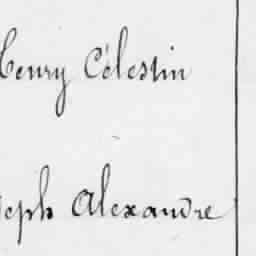 Henry Célestin
seph Alexandre